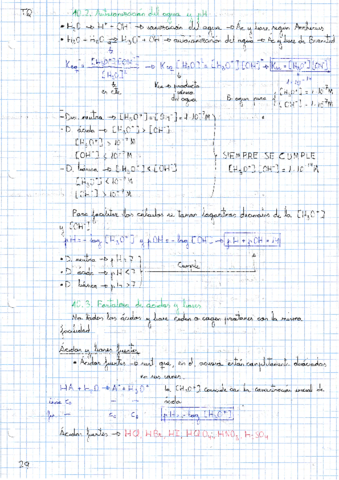 TQ
10.2. Autoionización del agua y pH
• H₂O → H⁺ + OH⁻ → ionización del agua → Ac y base según Arrhenius
• H₂O + H₂O ⇌ H₃O⁺ + OH⁻ → autoionización del agua → Ac y base de Brønsted
Keq = [H₃O⁺][OH⁻] / [H₂O]² → Keq [H₂O]² = [H₃O⁺][OH⁻] → Kw = [H₃O⁺][OH⁻]
es cte. Kw → producto iónico del agua 1·10⁻¹⁴
El agua pura [H₃O⁺] = 1·10⁻⁷ M
[OH⁻] = 1·10⁻⁷ M
- Dis. neutra → [H₃O⁺] = [OH⁻] = 1·10⁻⁷ M
- D. ácida → [H₃O⁺] > [OH⁻]
[H₃O⁺] > 10⁻⁷ M
[OH⁻] < 10⁻⁷ M
SIEMPRE SE CUMPLE
- D. básica → [H₃O⁺] < [OH⁻]
[H₃O⁺]·[OH⁻] = 1·10⁻¹⁴
[H₃O⁺] < 10⁻⁷ M
[OH⁻] > 10⁻⁷ M
Para facilitar los cálculos se toman logaritmos decimales de la [H₃O⁺]
y [OH⁻]
pH = -log [H₃O⁺] y pOH = -log [OH⁻] → pH + pOH = 14
• D. neutra → pH = 7
• D. ácida → pH < 7
Cumple
• D. básica → pH > 7
10.3. Fortaleza de ácidos y bases
No todos los ácidos y bases ceden o cogen protones con la misma
facilidad.
Ácidos y bases fuertes
• Ácidos fuertes → sust que, en d. acuosa están completamente disociados
en sus iones
HA + H₂O → A⁻ + H₃O⁺ la [H₃O⁺] coincide con la concentración inicial de
inicio C₀ — — ácido
fin — C₀ C₀ pH = -log [H₃O⁺]
Ácidos fuertes → HCl, HBr, HI, HClO₄, HNO₃, H₂SO₄
29